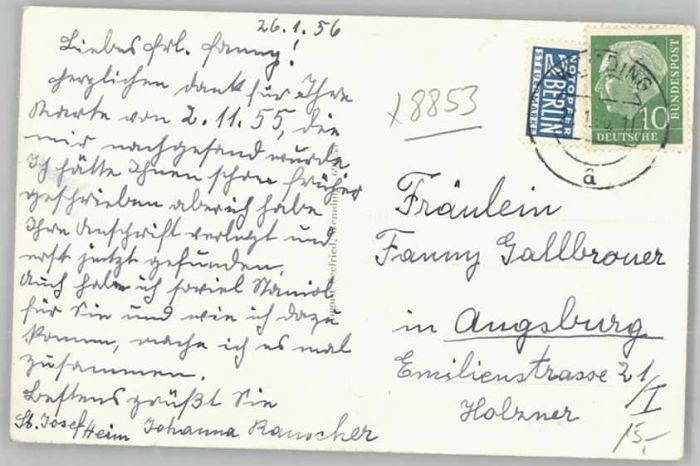 26.1.56
Liebes Frl. Fanny!
Herzlichen Dank für Ihre
Karte vom 2.11.55, die
mir nachgesand wurde
Ich hätte Ihnen schon früher
geschrieben aber ich habe
Ihre Anschrift verlegt und
erst jetzt gefunden.
Auch habe ich soviel Staniol
für Sie und wie ich dazu
komm, mache ich es mal
zusammen.
Bestens grüßt Sie
St. Josef Heim Johanna Rauscher
x8853
NOTOPFER
2 BERLIN
STEUERMARKE
10
DEUTSCHE
BUNDESPOST
DING
a
Fräulein
Fanny Gallbroner
in Augsburg
Emilienstrasse 21/I
Holzner
15,-